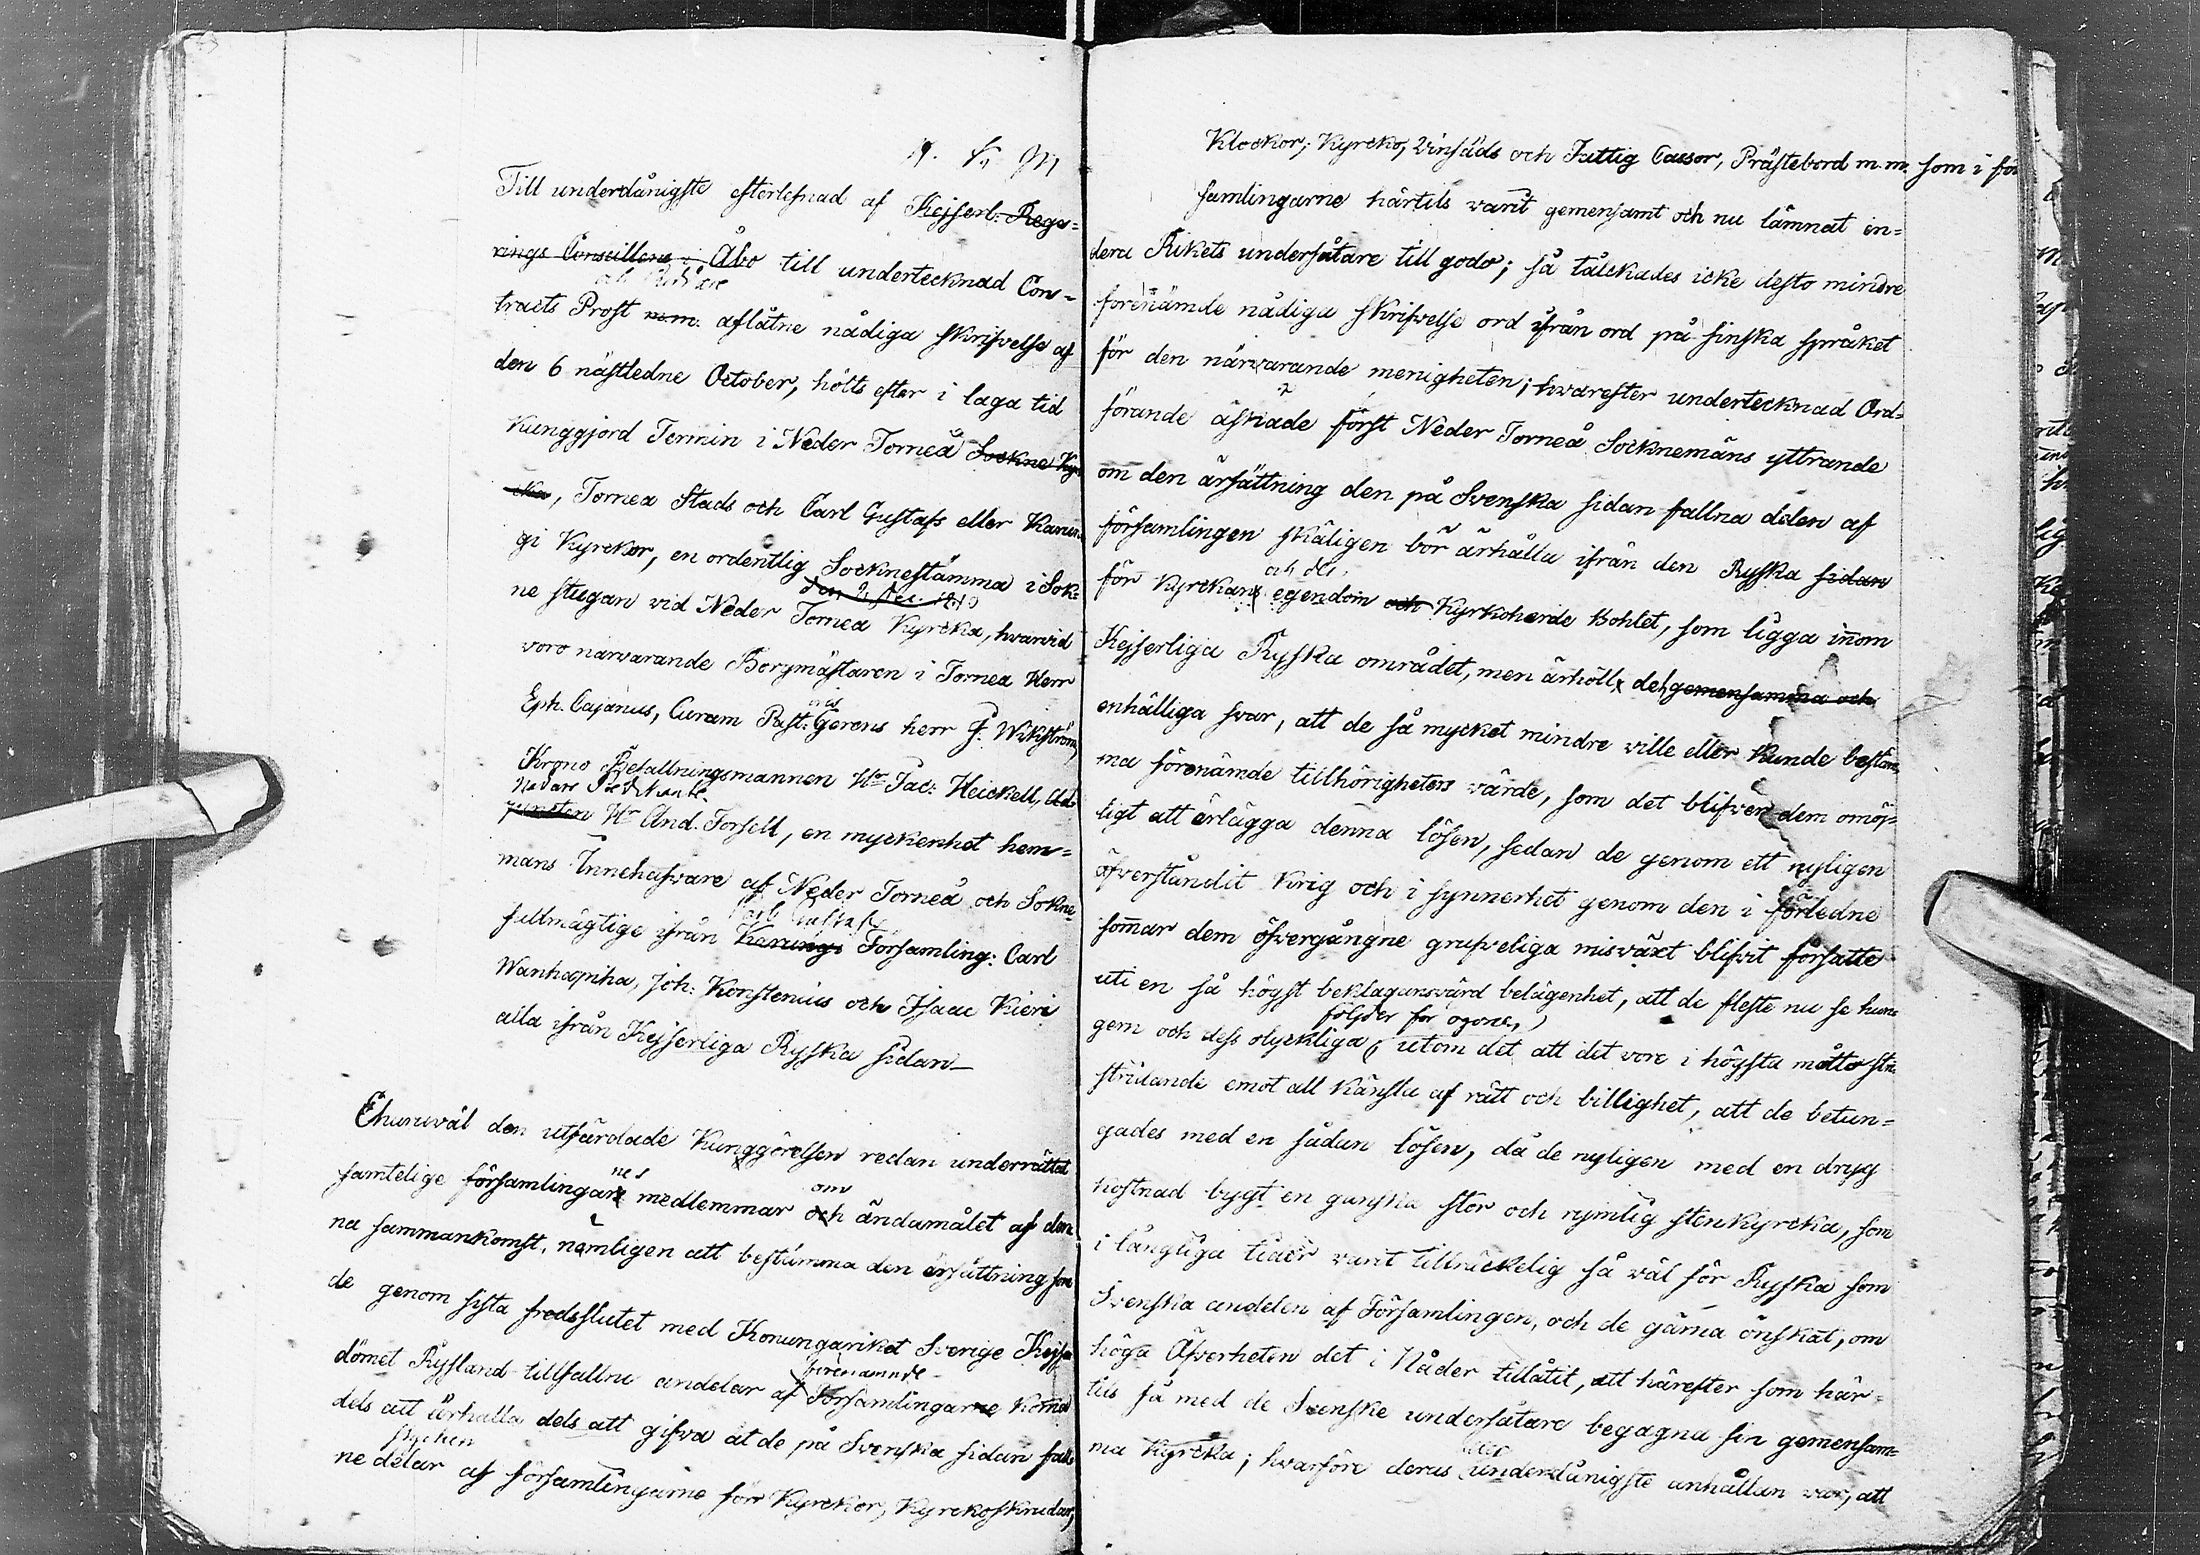 Till underdånigste efterlefnad af Kejserl. Rege=
rings Conseillens i Åbo till undertecknad Con=
och Riddare
tracts Prost m.m. aflåtne nådiga skrifvelse af
den 6 nästledne October, hölts efter i laga tid
Kunggjord Termin i Neder Torneå Sockne Kyr
cka, Torneå Stads och Carl Gustafs eller Karun
gi Kyrckor, en ordentlig Socknestämma i Sok=
ne stugan vid Neder Torneå Kyrcka, hvarvid
voro närvarande Borgmästaren i Torneå Herr
Eph. Cajanus, Curam Past. Gerens herr J. Wikström,
Krono Befallningsmannen Hr Jac: Heickell, Ad=
juncten Hr And. Forsell, en myckenhet hem=
mans Innehafvare af Neder Torneå och Sokne
Carl Gustafs
fullmägtige ifrån Karungi Församling: Carl
Wanhapiha, Joh: Korstenius och Isaac Kieri
alla ifrån Kejserliga Ryska sidan_
Ehuruväl den utfärdade Kunggörelsen redan underrättat
nes om
samtelige församlingars medlemmar och ändamålet af den
na sammankomst, nämligen att bestämma den ersättning som
de genom sista fredsslutet med Konungariket Sverige Kejsa
förenämnde
dömet Ryssland tillfallne andelar af Församlingarne komma
dels att ärhalla dels att gifva åt de på Svenska sidan fall
stycken
ne delar af församlingarne för Kyrckor, Kyrckoskrudar,
Klockor, Kyrcko, Vinsäds och Fattig Cassor, Prästebord m.m. som i för
samlingarne härtils varit gemensamt och nu lämnat en=
dera Rikets undersåtare till godo; så tålckades icke desto mindre
förenämde nådiga skrifvelse ord ifrån ord på finska språket
för den närvarande menigheten; hvarefter undertecknad Ord=
förande äskade först Neder Torneå Socknemäns yttrande
om den ärsättning den på Svenska sidan fallna delen af
församlingen skäligen bör ärhålla ifrån den Ryska sidan
och des
för Kyrckans egendom och Kyrkoherde Bohlet, som ligga inom
Kejserliga Ryska området, men ärhöllt det gemensamma och
enhälliga svar, att de så mycket mindre ville eller kunde bestäm
ma förenämde tillhörigheters värde, som det blifver dem omöj=
ligt att ärlägga denna lösen, sedan de genom ett nyligen
öfverståndit krig och i synnerhet genom den i förledne
sommar dem öfvergångne grufveliga misväxt blifvit försatte
uti en så högst beklagansvärd belägenhet, att de fleste nu se hun
följder för ögone,
gern och dess olyckliga utom det att det vore i högsta måtto
stridande emot all känsla af rätt och billighet, att de betun=
gades med en sådan lösen, då de nyligen med en dryg
kostnad bygt en ganska stor och rymlig stenkyrcka, som
i långliga tider varit tillräckelig så väl för Ryska som
Svenska andelen af Församlingen, och de gärna önskat, om
höga Öfverheten det i Nåder tillåtit, att härefter som här=
tils få med de Svenske undersåtare begagna sin gemensam=
ma Kyrcka; hvarföre deras underdånigste anhållan var, att